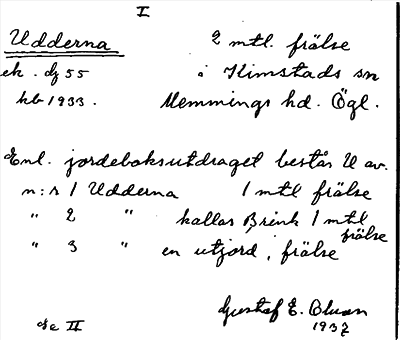 I
Udderna 2 mtl. frälse
ek. bl 55 i Kimstads sn
hb 1933. Memmings hd. Ögl.
Enl. jordeboksutdraget består U av.
n:r 1 Udderna 1 mtl frälse
" 2 " kallas Brink 1 mtl frälse
" 3 " en utjord, frälse
Gustaf E.
1937
Se II